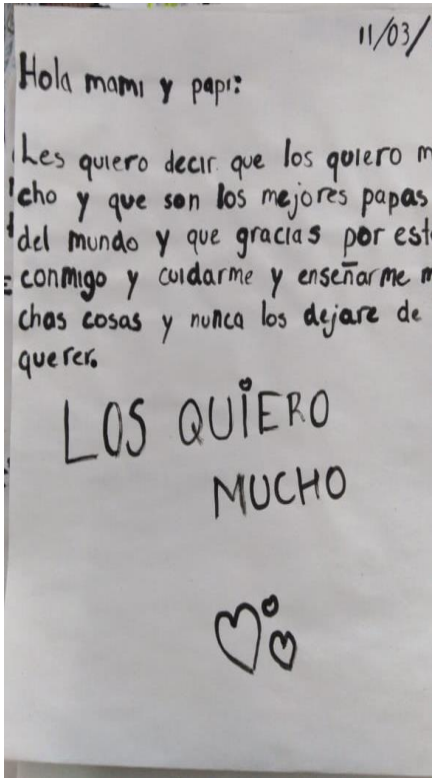 11/03/
Hola mami y papi:
Les quiero decir que los quiero m
cho y que son los mejores papas
del mundo y que gracias por est
conmigo y cuidarme y enseñarme m
chas cosas y nunca los dejare de
querer.
LOS QUIERO
MUCHO